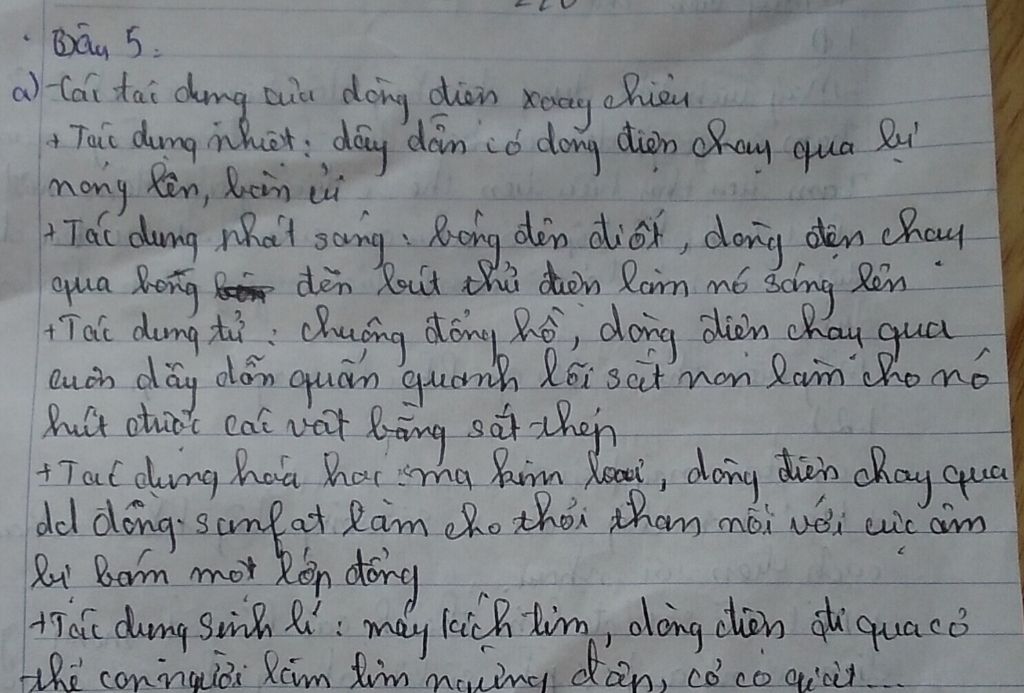 Bài 5:
a) - Các tác dụng của dòng điện xoay chiều
+ Tác dụng nhiệt: dây dẫn có dòng điện chạy qua bị
nóng lên, bàn ủi
+ Tác dụng phát sáng: bóng đèn điốt, dòng điện chạy
qua bóng đèn bút thử điện làm nó sáng lên
+ Tác dụng từ: chuông đồng hồ, dòng điện chạy qua
cuộn dây dẫn quấn quanh lõi sắt non làm cho nó
hút được các vật bằng sắt thép
+ Tác dụng hoá học: mạ kim loại, dòng điện chạy qua
dd đồng sunfat làm cho thỏi than nối với cực âm
bị bám một lớp đồng
+ Tác dụng sinh lí: máy kích tim, dòng điện đi qua cơ
thể con người làm tim ngừng đập, cơ co quắt...